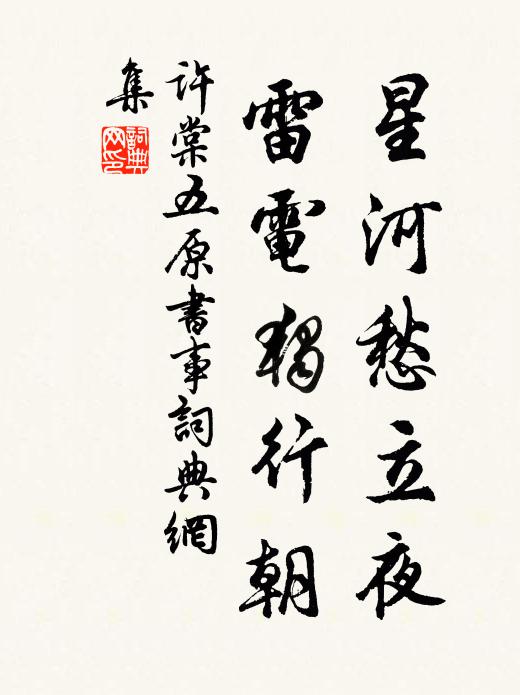 星河愁立夜
雷電獨行朝
許棠五原書事詞典網
集
詞典
网印